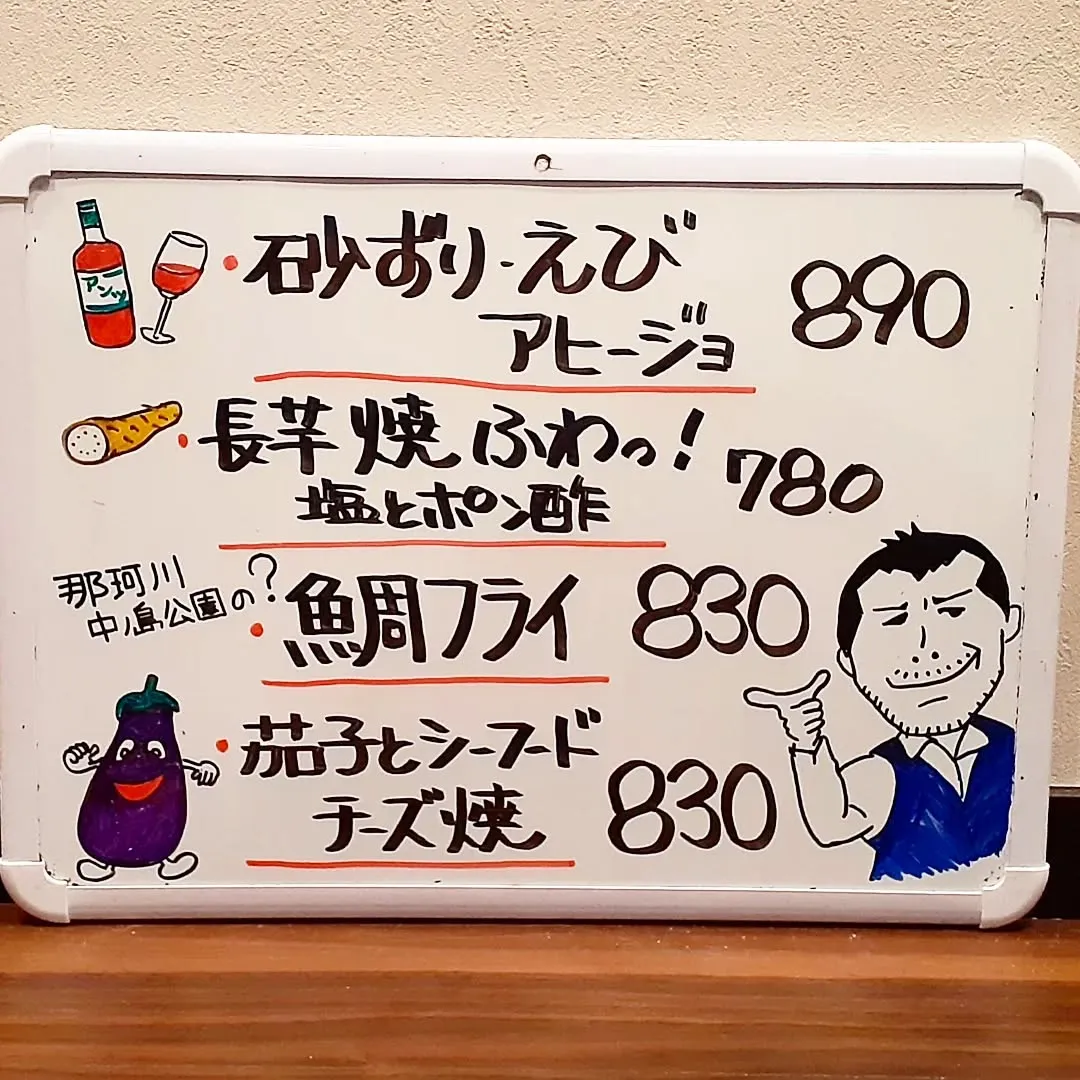 アンツ
・砂ずり・えび
アヒージョ 890
・長芋焼 ふわっ!
塩とポン酢 780
那珂川
中島公園の?
・鯛フライ 830
・茄子とシーフード
チーズ焼 830